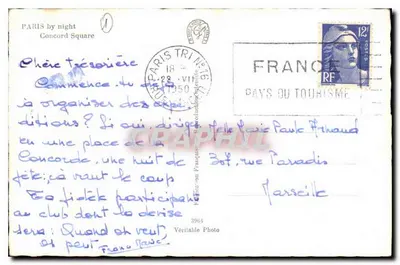 PARIS by night
Concord Square
1
PARIS TRI N°18
18
22 - VII
1950
FRANCE
PAYS DU TOURISME
12F
RF
Chère trésorière
Commence-tu déjà
à organiser des expé
ditions? Si oui diriges
en une place de la
Concorde, une nuit de
fête; çà vaut le coup
Ta fidèle participante
au club dont la devise
sera: Quand on veut,
on peut
Melle Marie Paule
rue Paradis
Marseille
Véritable Photo
Cparama